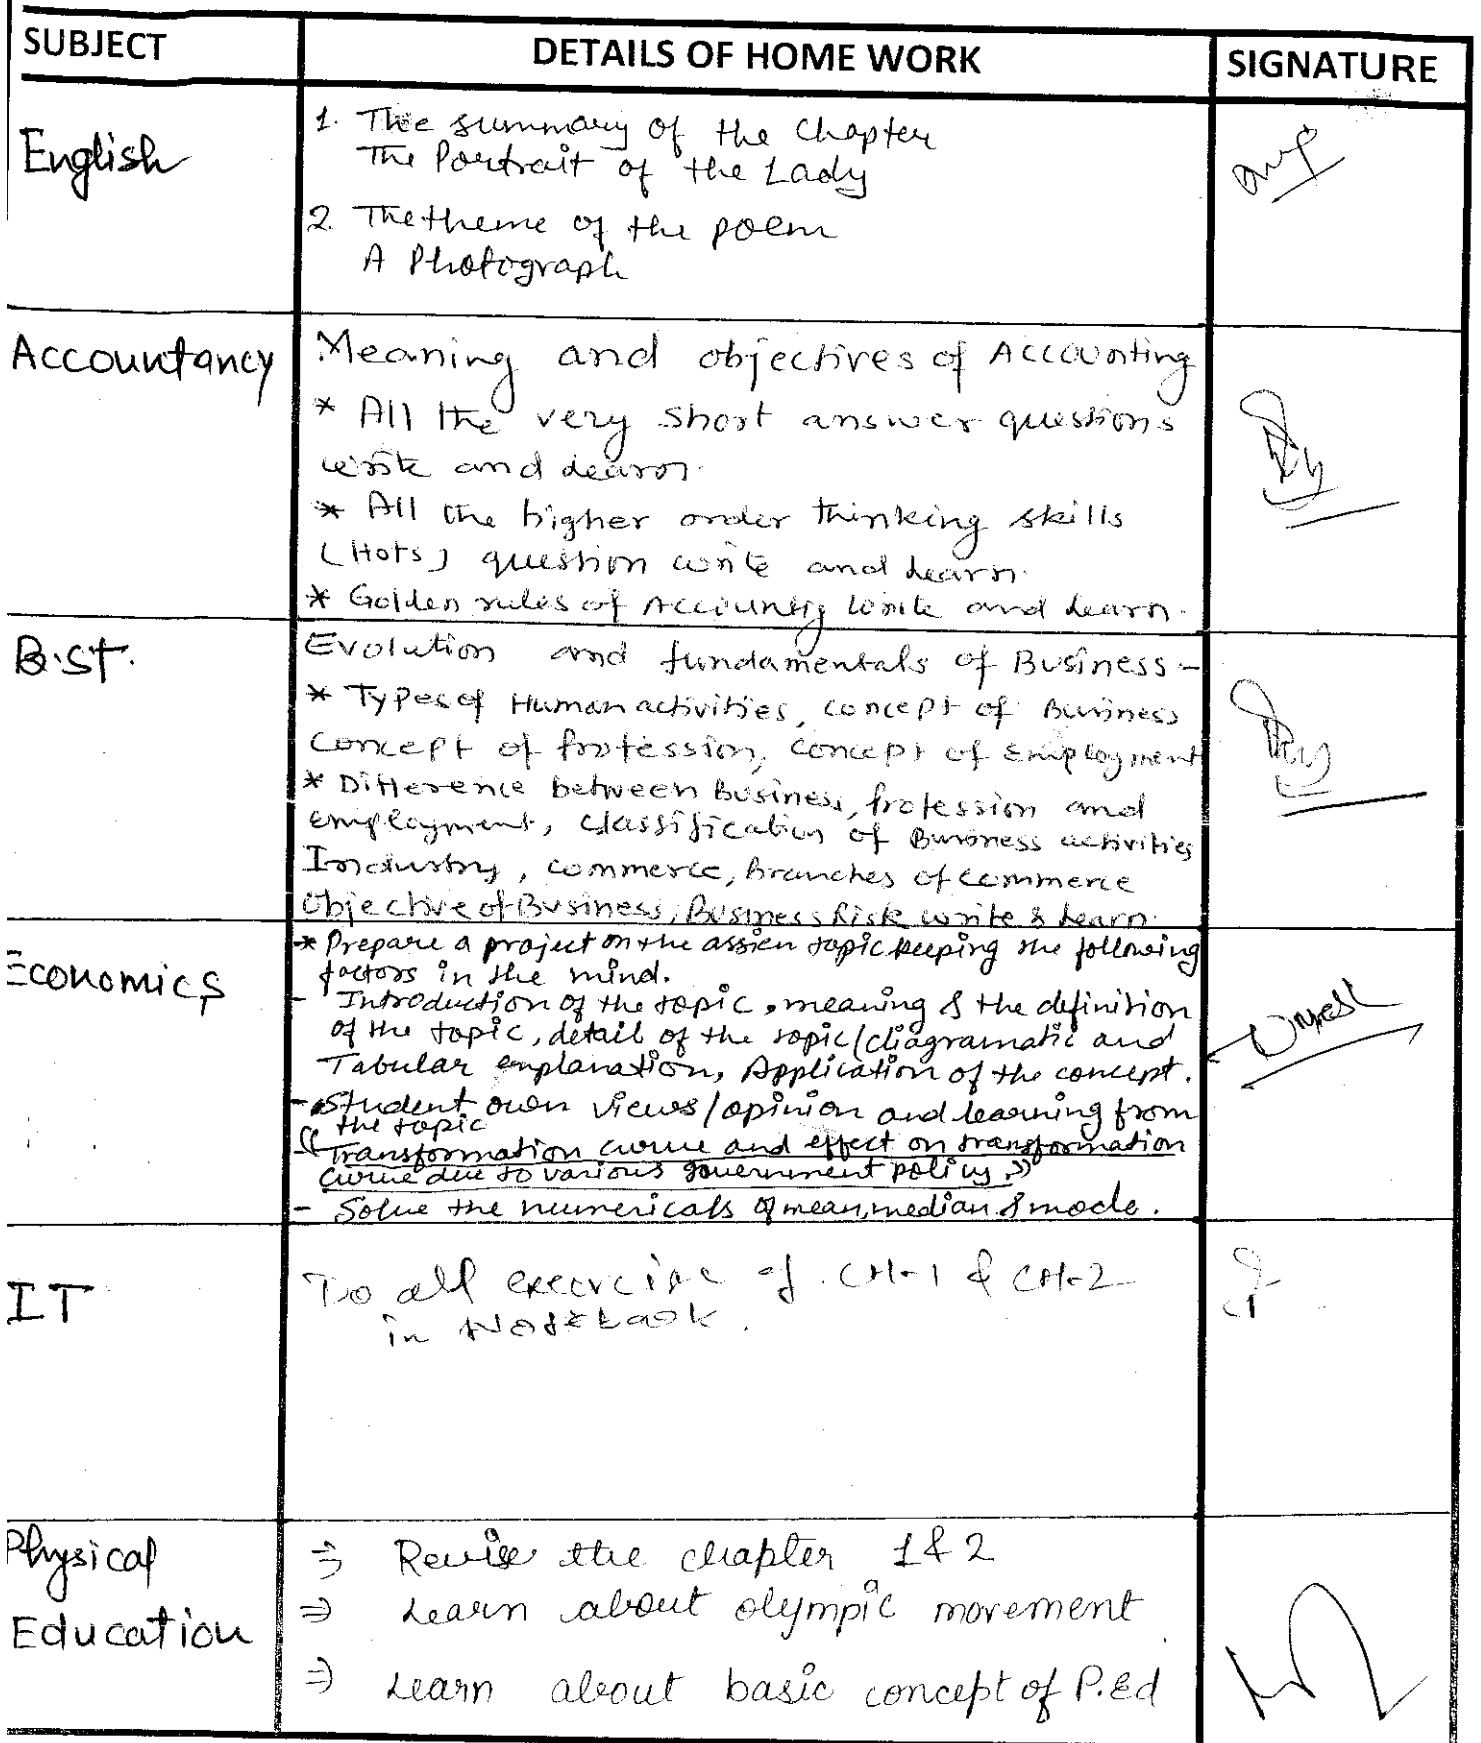 SUBJECT DETAILS OF HOME WORK SIGNATURE
English
1. The summary of the Chapter
The Portrait of the Lady
2. The theme of the poem
A Photograph
Accountancy
Meaning and objectives of Accounting
* All the very short answer questions
write and learn.
* All the higher order thinking skills
(Hots) question write and learn.
* Golden rules of Accounting write and learn.
B.St.
Evolution and fundamentals of Business -
* Types of Human activities, concept of Business
Concept of profession, concept of employment
* Difference between Business, profession and
employment, classification of Business activities
Industry, commerce, Branches of commerce
Objective of Business, Business Risk write & learn.
Economics
* Prepare a project on the assien topic keeping the following
factors in the mind.
- Introduction of the topic, meaning & the definition
of the topic, detail of the topic/diagramatic and
Tabular explanation, Application of the concept.
- Student own views/opinion and learning from
the topic
"Transformation curve and effect on transformation
curve due to various government policy."
- Solve the numericals of mean, median & mode.
IT
To all exercise of CH-1 & CH-2
in Notebook.
Physical
Education
⇒ Revise the chapter 1 & 2
⇒ Learn about olympic movement
⇒ Learn about basic concept of P.Ed